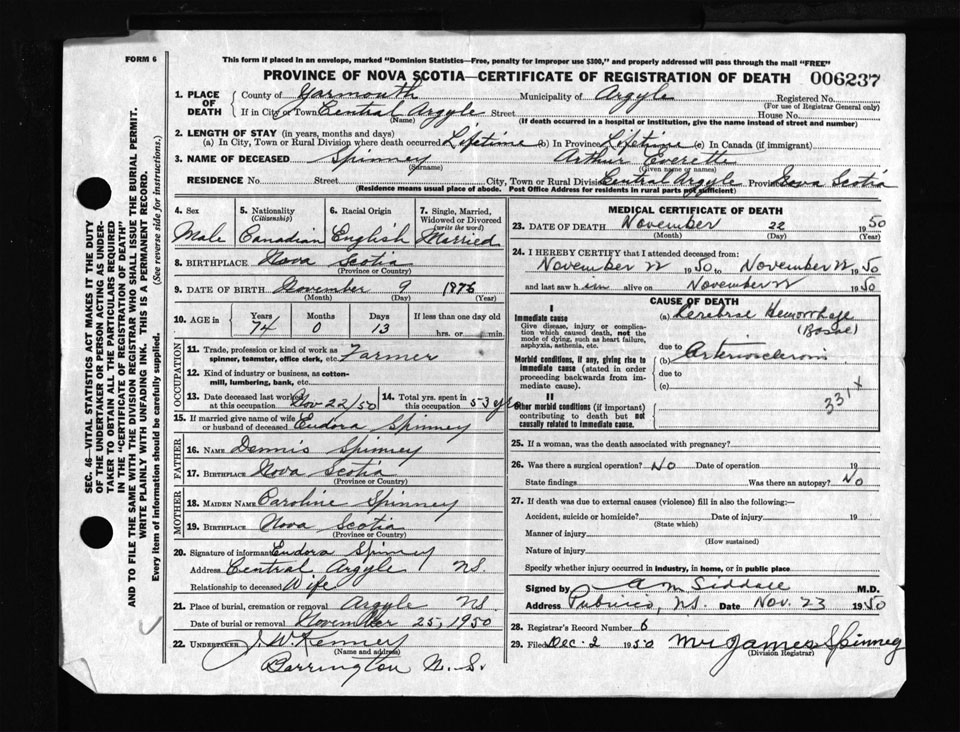 FORM 6
This form if placed in an envelope, marked "Dominion Statistics—Free, penalty for improper use $300," and properly addressed will pass through the mail "FREE"
PROVINCE OF NOVA SCOTIA—CERTIFICATE OF REGISTRATION OF DEATH 006237
1. PLACE OF DEATH
County of Yarmouth Municipality of Argyle Registered No.
(For use of Registrar General only)
If in City or Town Central Argyle Street House No.
(Name) (If death occurred in a hospital or institution, give the name instead of street and number)
2. LENGTH OF STAY (in years, months and days)
(a) In City, Town or Rural Division where death occurred Lifetime (b) In Province Lifetime (c) In Canada (if immigrant)
3. NAME OF DECEASED Spinney Arthur Everette
(Surname) (Given name or names)
RESIDENCE No. Street City, Town or Rural Division Central Argyle Province Nova Scotia
(Residence means usual place of abode. Post Office Address for residents in rural parts not sufficient)
4. Sex
Male
5. Nationality
(Citizenship)
Canadian
6. Racial Origin
English
7. Single, Married,
Widowed or Divorced
(write the word)
Married
8. BIRTHPLACE Nova Scotia
(Province or Country)
9. DATE OF BIRTH November 9 1876
(Month) (Day) (Year)
10. AGE in
Years Months Days If less than one day old
74 0 13 hrs. or minutes
OCCUPATION
11. Trade, profession or kind of work as
spinner, teamster, office clerk, etc. Farmer
12. Kind of industry or business, as cotton-
mill, lumbering, bank, etc.
13. Date deceased last worked
at this occupation Nov 22/50
14. Total yrs. spent in
this occupation 53 yrs
15. If married give name of wife
or husband of deceased Eudora Spinney
FATHER
16. NAME Dennis Spinney
17. BIRTHPLACE Nova Scotia
(Province or Country)
MOTHER
18. MAIDEN NAME Caroline Spinney
19. BIRTHPLACE Nova Scotia
(Province or Country)
20. Signature of informant Eudora Spinney
Address Central Argyle N.S.
Relationship to deceased Wife
21. Place of burial, cremation or removal Argyle N.S.
Date of burial or removal November 25, 1950
22. UNDERTAKER J. W. Kenney
(Name and address)
Barrington N.S.
MEDICAL CERTIFICATE OF DEATH
23. DATE OF DEATH November 22 1950
(Month) (Day) (Year)
24. I HEREBY CERTIFY that I attended deceased from:
November 22 1950 to November 22 1950
and last saw him alive on November 22 1950
CAUSE OF DEATH
I
Immediate cause
Give disease, injury or complica-
tion which caused death, not the
mode of dying, such as heart failure,
asphyxia, asthenia, etc.
(a) Cerebral Hemorrhage
due to
Morbid conditions, if any, giving rise to
immediate cause (stated in order
proceeding backwards from im-
mediate cause).
(b) Arteriosclerosis
due to
(c)
331X
II
Other morbid conditions (if important)
contributing to death but not
causally related to immediate cause.
25. If a woman, was the death associated with pregnancy?
26. Was there a surgical operation? No Date of operation 19
State findings Was there an autopsy? No
27. If death was due to external causes (violence) fill in also the following:—
Accident, suicide or homicide? Date of injury 19
(State which)
Manner of injury
(How sustained)
Nature of injury
Specify whether injury occurred in industry, in home, or in public place
Signed by A M Siddall M.D.
Address Pubnico, N.S. Date Nov. 23 1950
28. Registrar's Record Number 6
29. Filed Dec-2 1950 Mrs James Spinney
(Division Registrar)
SEC. 46—VITAL STATISTICS ACT MAKES IT THE DUTY
OF THE UNDERTAKER OR PERSON ACTING AS UNDER-
TAKER TO OBTAIN ALL THE PARTICULARS REQUIRED
IN THE "CERTIFICATE OF REGISTRATION OF DEATH"
AND TO FILE THE SAME WITH THE DIVISION REGISTRAR WHO SHALL ISSUE THE BURIAL PERMIT.
WRITE PLAINLY WITH UNFADING INK. THIS IS A PERMANENT RECORD.
Every item of information should be carefully supplied. (See reverse side for instructions.)